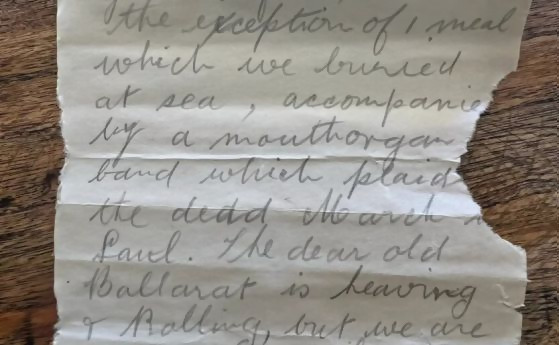 the exception of 1 meal
which we buried
at sea, accompanie
by a mouthorgan
band which plaid
the dedd March
Saul. The dear old
Ballarat is heaving
& Rolling, but we are